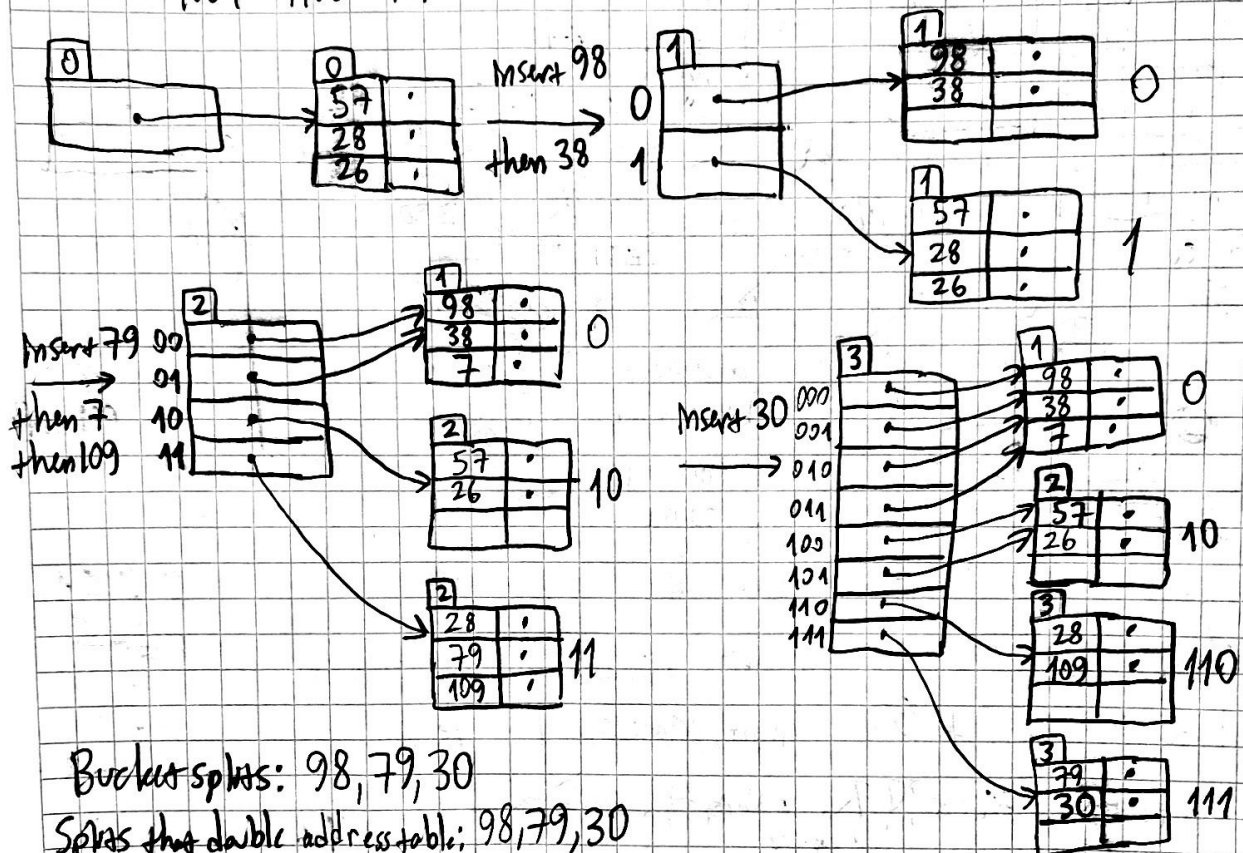 0
0
57
28
26
Insert 98
then 38
1
0
1
1
98
38
0
1
57
28
26
1
Insert 79
then 7
then 109
2
00
01
10
11
1
98
38
7
0
2
57
26
10
2
28
79
109
11
Insert 30
3
000
001
010
011
100
101
110
111
1
98
38
7
0
2
57
26
10
3
28
109
110
3
79
30
111
Bucket splits: 98, 79, 30
Splits that double address table: 98, 79, 30